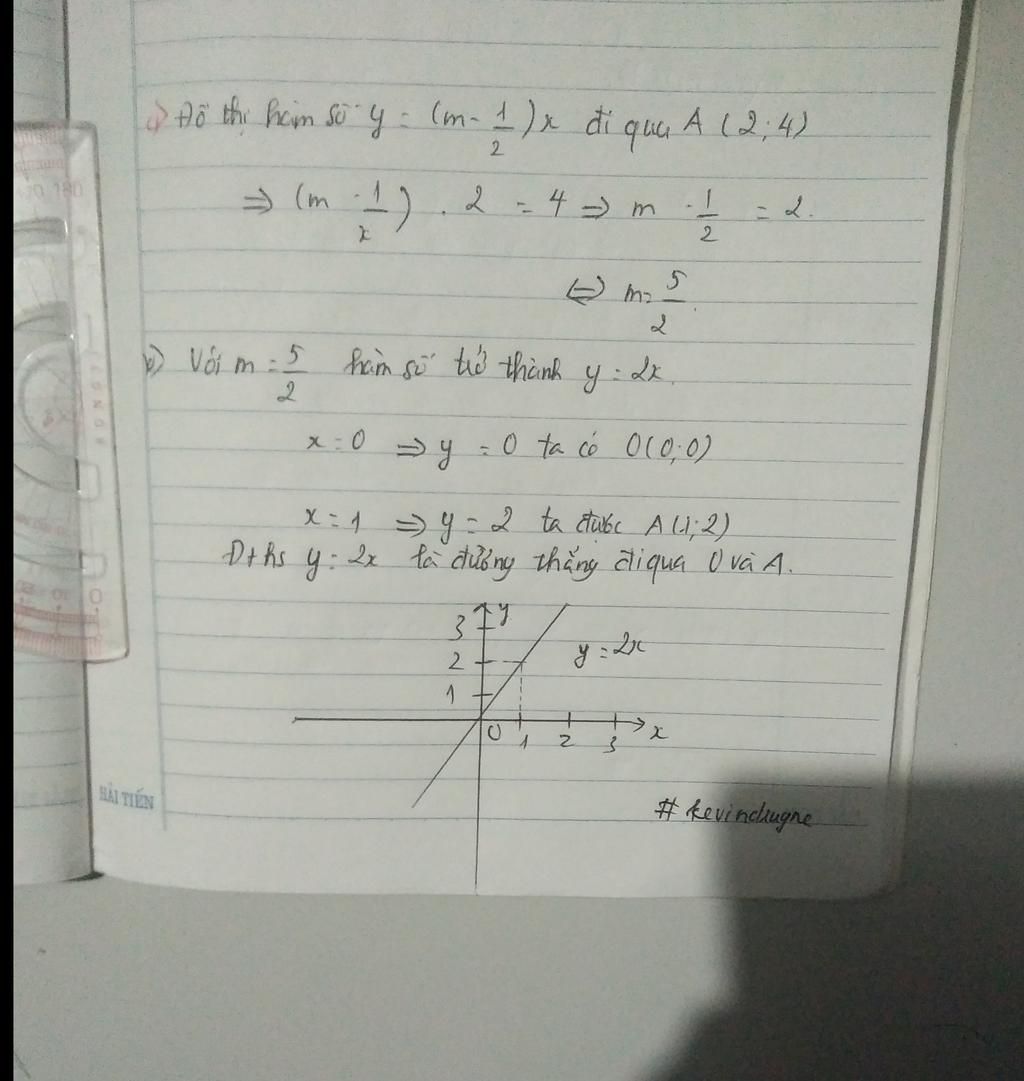 a) Đồ thị hàm số y = (m - 1/2)x đi qua A (2;4)
⇒ (m - 1/x) . 2 = 4 ⇒ m - 1/2 = 2.
⇔ m = 5/2.
b) Với m = 5/2 hàm số trở thành y = 2x.
x = 0 ⇒ y = 0 ta có O(0;0)
x = 1 ⇒ y = 2 ta được A(1;2)
Đths y = 2x là đường thẳng đi qua O và A.
y
3
y = 2x
2
1
0 1 2 3 x
HẢI TIẾN
# kevinchugne